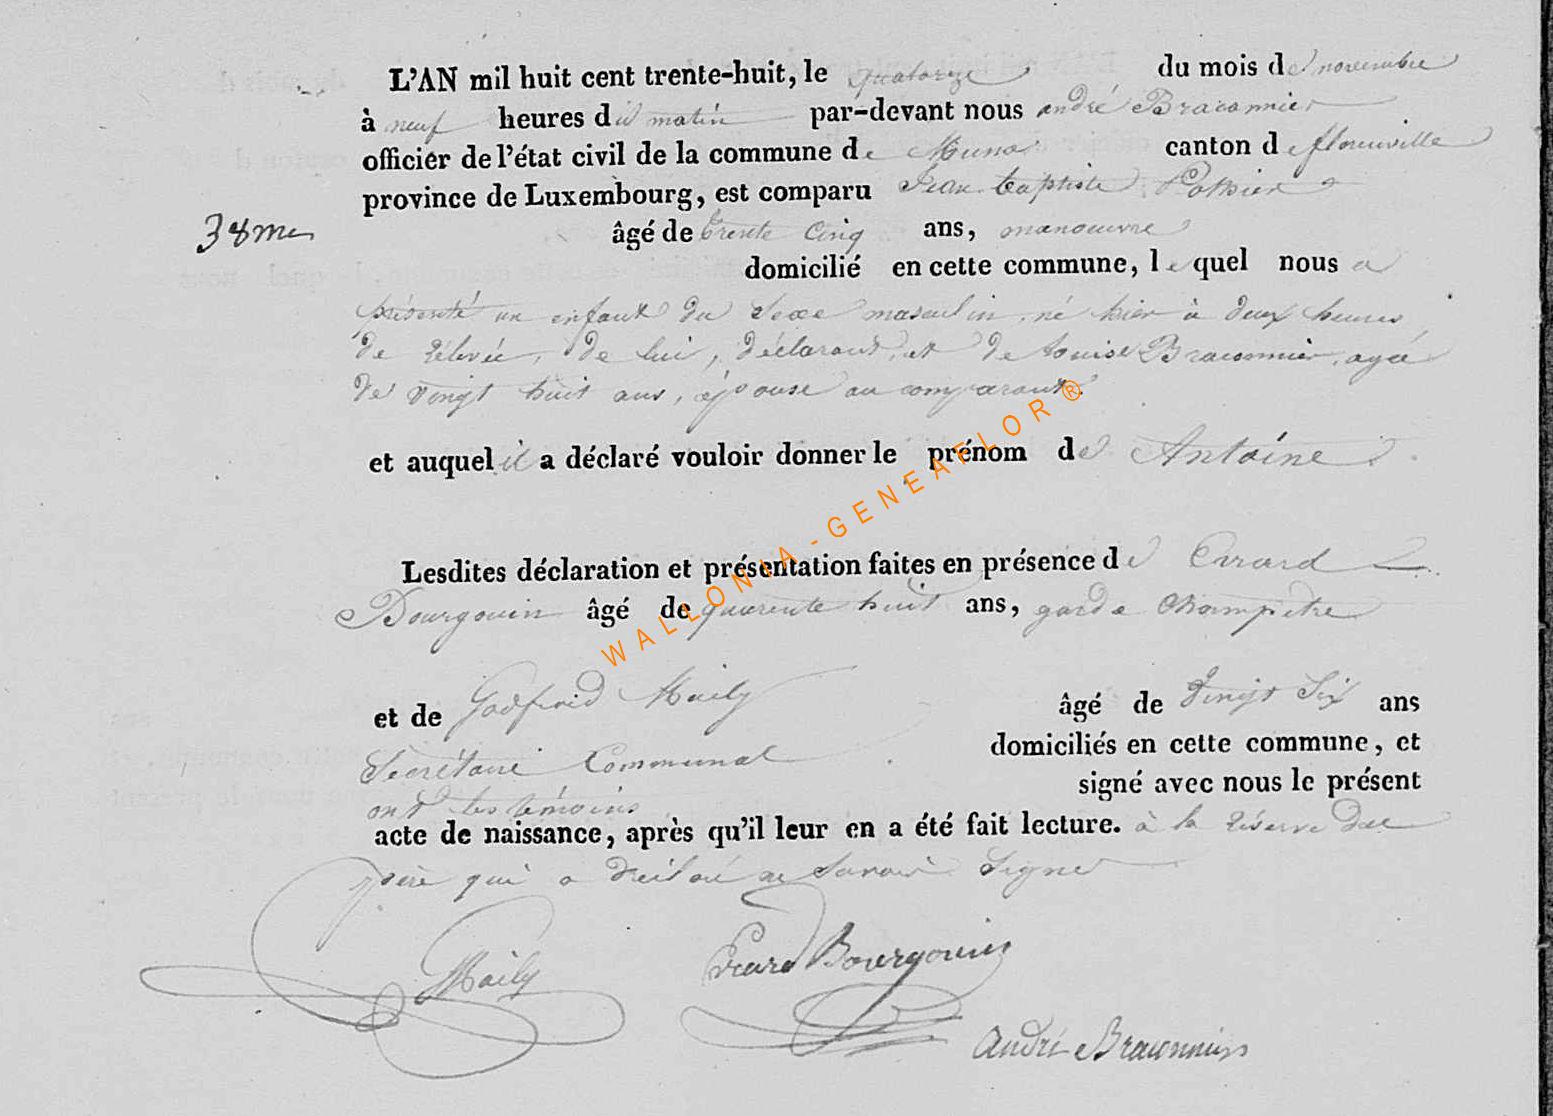 L'AN mil huit cent trente-huit, le quatorze du mois de novembre
à neuf heures du matin par-devant nous andré Braconnier
officier de l'état civil de la commune de Muno canton de florenville
province de Luxembourg, est comparu Jean baptiste Pothier
38me âgé de trente cinq ans, manoeuvre
domicilié en cette commune, lequel nous a
présenté un enfant du sexe masculin, né hier à deux heures
de rélevée, de lui, déclarant, et de Louise Braconnier, agée
de vingt huit ans, épouse au comparant.
et auquel il a déclaré vouloir donner le prénom de Antoine
Lesdites déclaration et présentation faites en présence de Evrard
Bourgouin âgé de quarente huit ans, garde Champetre
et de Godfroid Maily âgé de vingt six ans
Secrétaire Communal domiciliés en cette commune, et
ont les témoins signé avec nous le présent
acte de naissance, après qu'il leur en a été fait lecture. à la réserve du
père qui a déclaré ne savoir signer
Maily Evrard Bourgouin
André Braconnier
WALLONIA-GENEAFLOR®